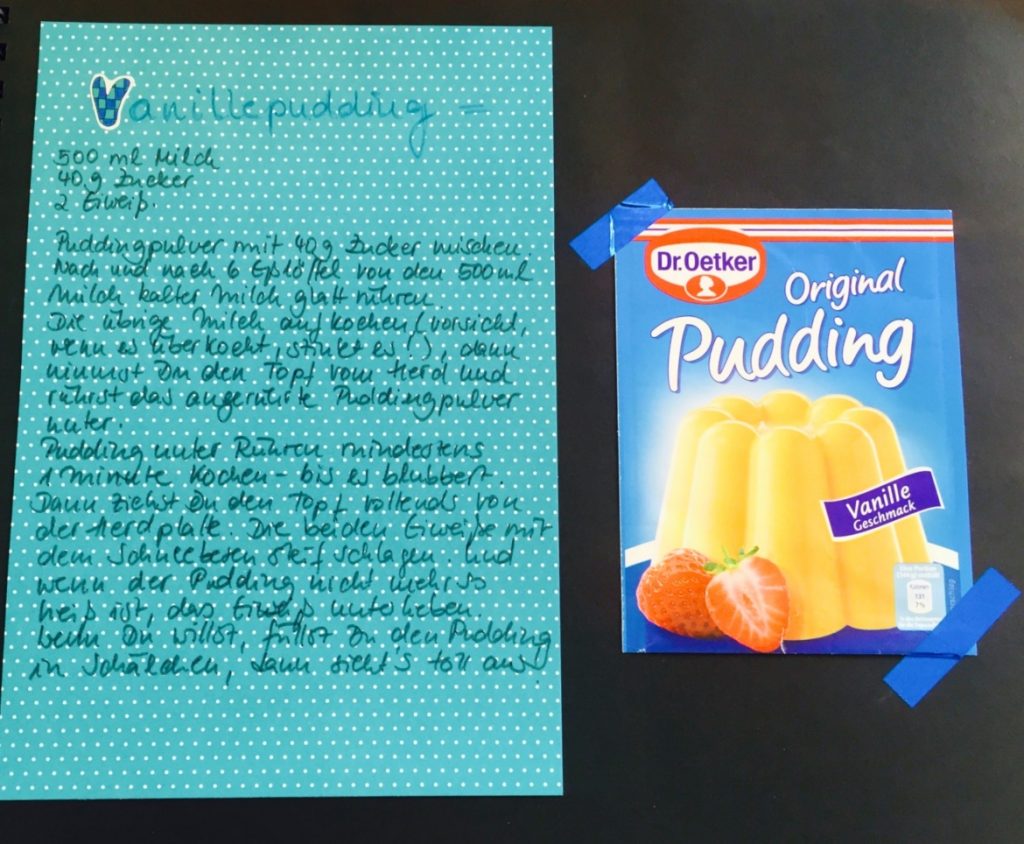 Vanillepudding -
500 ml Milch
40 g Zucker
2 Eiweiß.
Puddingpulver mit 40 g Zucker mischen
Nach und nach 6 Eßlöffel von den 500 ml
Milch kalter Milch glatt rühren.
Die übrige Milch aufkochen (vorsicht,
wenn es überkocht, stinkt es!), dann
nimmst Du den Topf vom Herd und
rührst das angerührte Puddingpulver
unter.
Pudding unter Rühren mindestens
1 Minute kochen - bis es blubbert.
Dann ziehst Du den Topf vollends von
der Herdplatte. Die beiden Eiweiße mit
dem Schneebesen steif schlagen und
wenn der Pudding nicht mehr so
heiß ist, das Eiweiß unterheben.
Wenn Du willst, füllst Du den Pudding
in Schälchen, dann sieht's toll aus.
Dr. Oetker
Original
Pudding
Vanille
Geschmack
131
7%